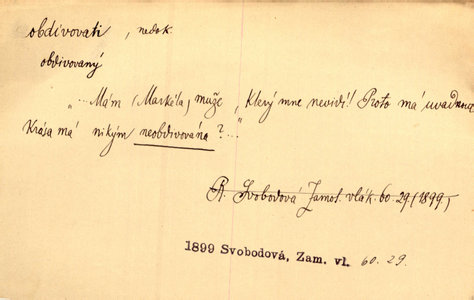 obdivovati, nedok.
obdivovaný
„...Mám (Markéta) muže, který mne nevidí! Proto má uvadnouti
Krása má nikým neobdivována?..."
R. Svobodová Zamot. vlák. 60. 29 (1899)
1899 Svobodová, Zam. vl. 60. 29.